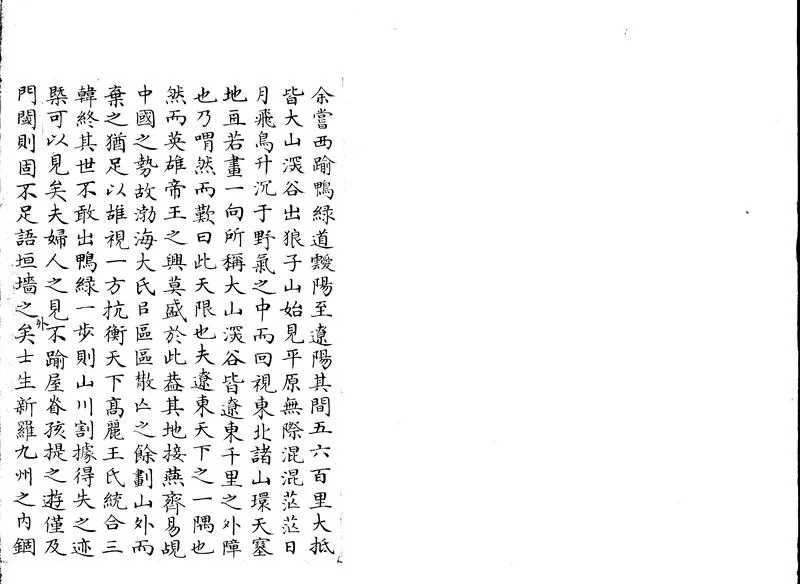 余嘗西踰鴨綠道靉陽至遼陽其間五六百里大抵
皆大山深谷出狼子山始見平原無際混混茫茫日
月飛鳥升沉于野氣之中而回視東北諸山環天塞
地亘若畫一向所稱大山深谷皆遼東千里之外障
也乃喟然而歎曰此天限也夫遼東天下之一隅也
然而英雄帝王之興莫盛於此葢其地接燕齊易覘
中國之勢故渤海大氏㠯區區散亾之餘劃山外而
棄之猶足以雄視一方抗衡天下高麗王氏統合三
韓終其世不敢出鴨綠一步則山川割據得失之迹
槩可以見矣夫婦人之見不踰屋脊孩提之遊僅及
門閾則固不足語垣墻之外矣士生新羅九州之内錮